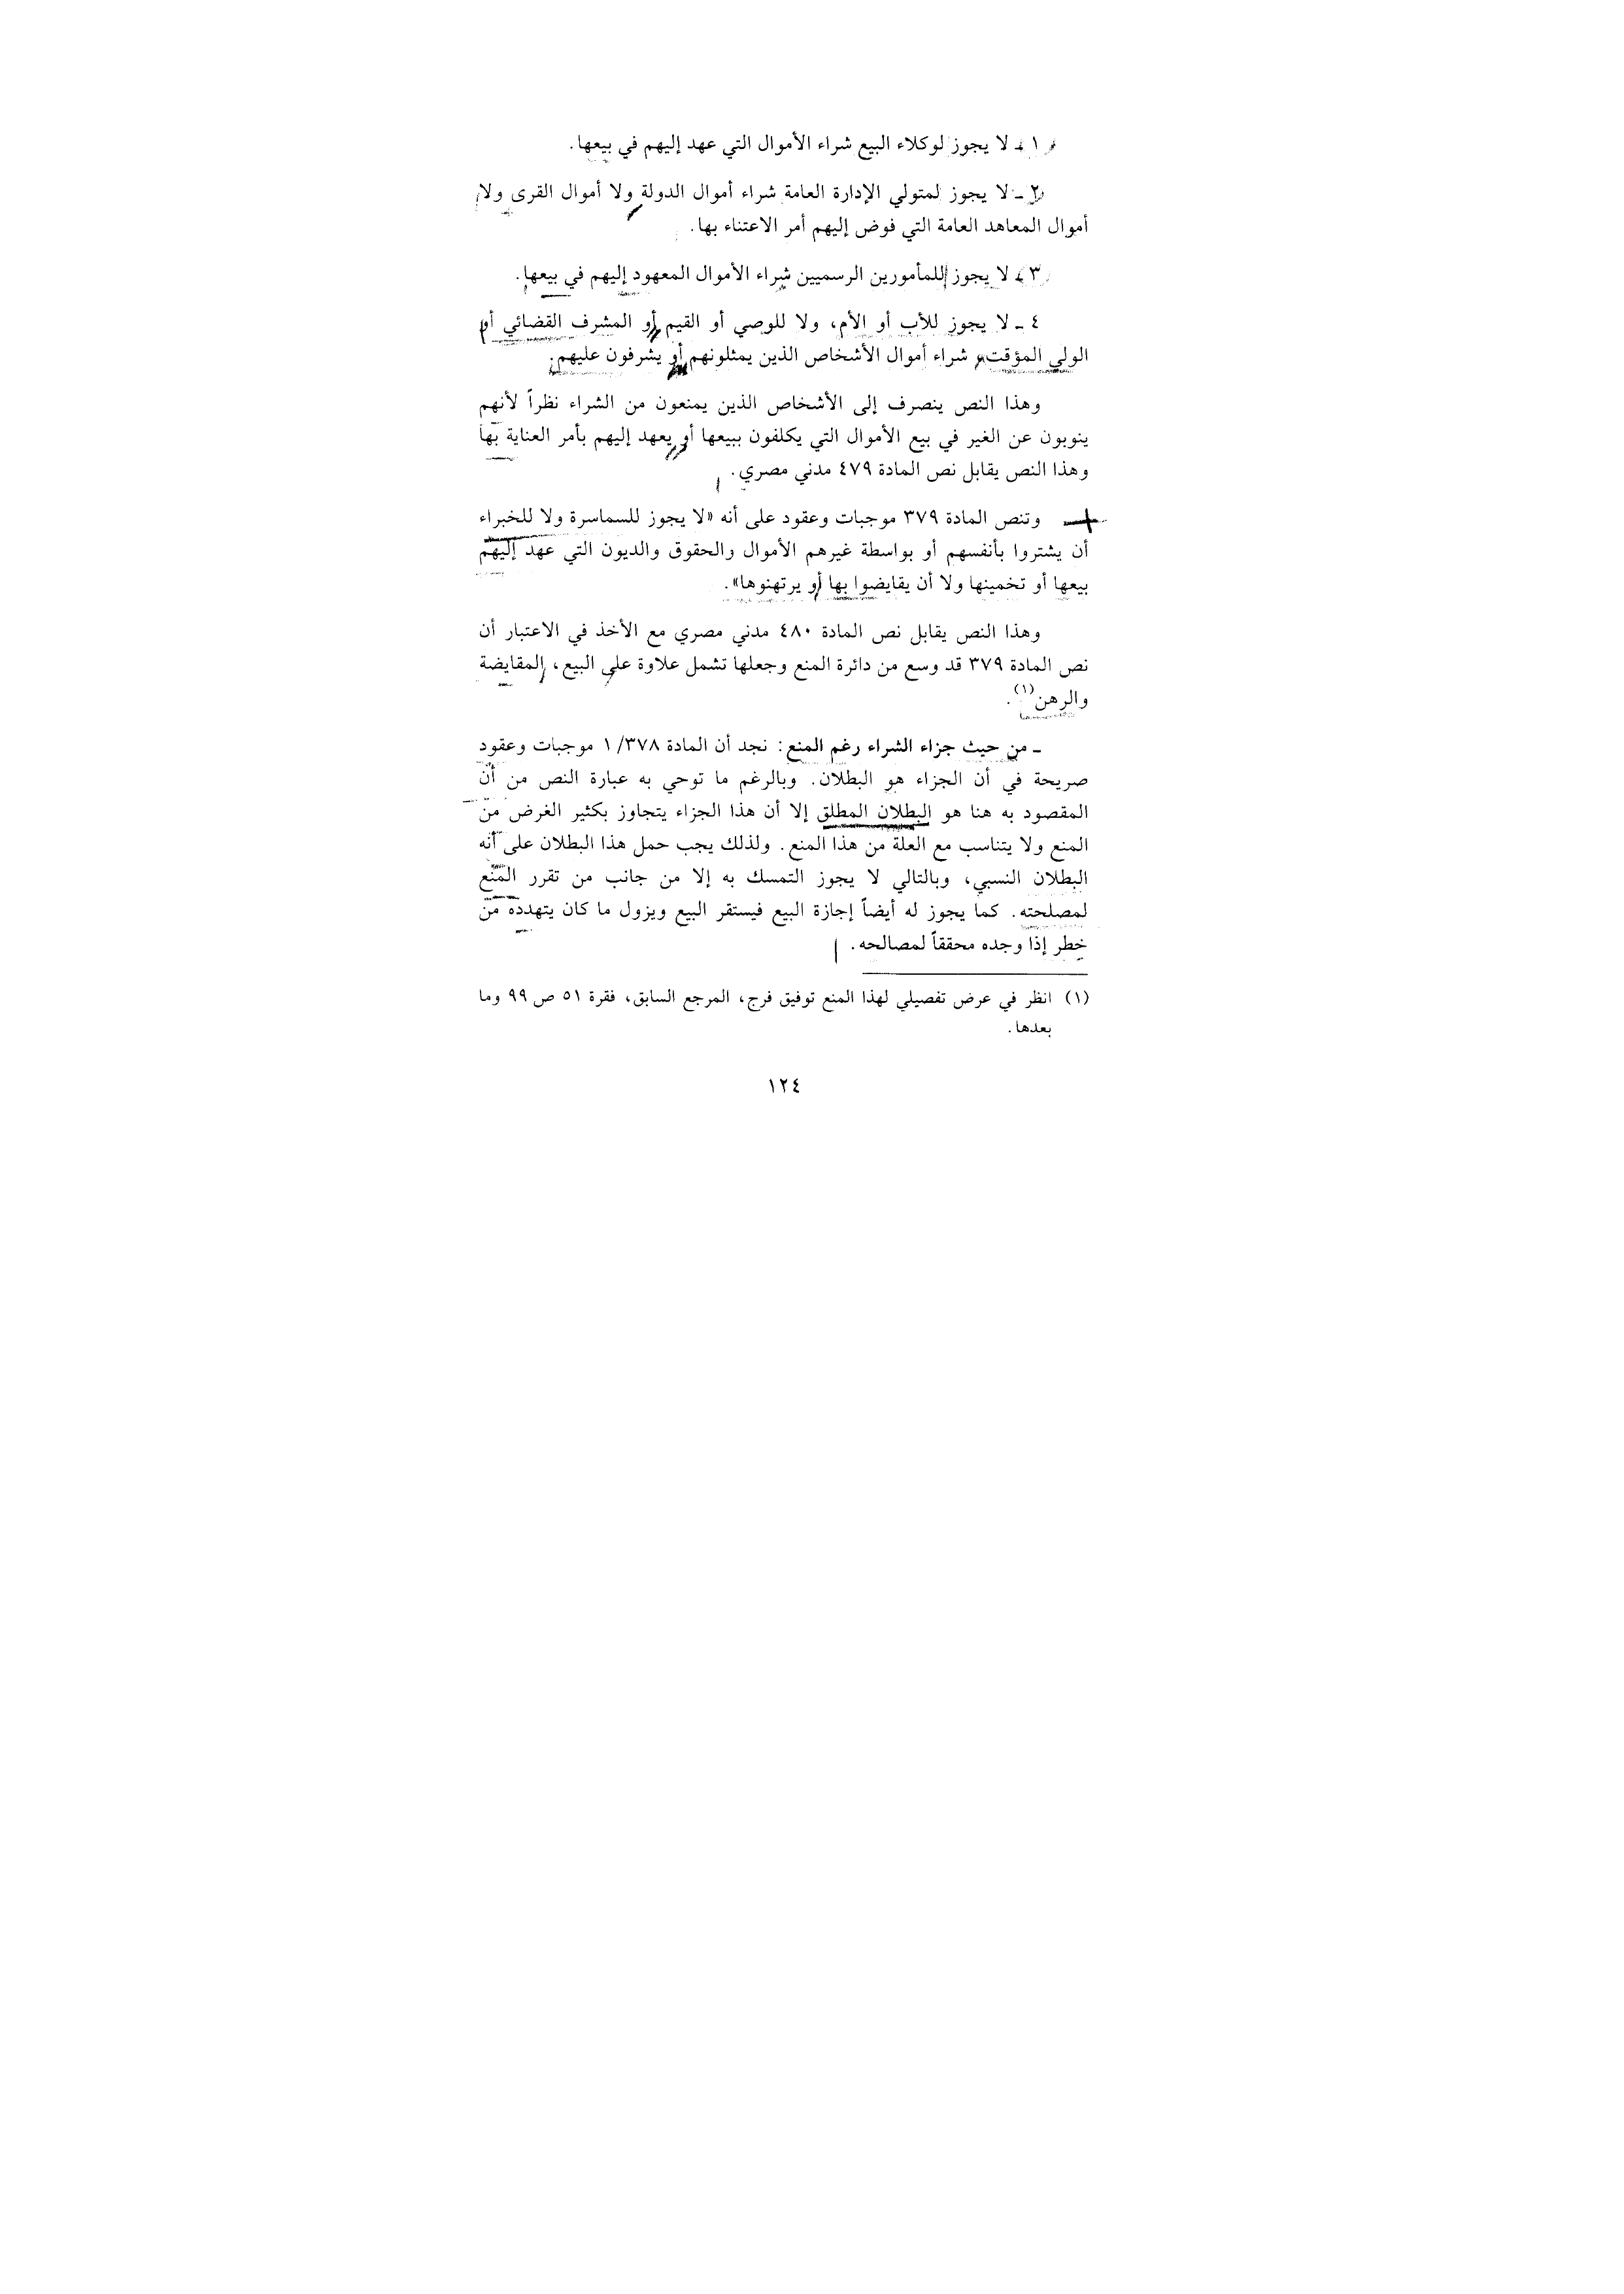 ١ ـ لا يجوز لوكلاء البيع شراء الأموال التي عهد إليهم في بيعها.
٢ ـ لا يجوز لمتولي الإدارة العامة شراء أموال الدولة ولا أموال القرى ولا
أموال المعاهد العامة التي فوض إليهم أمر الاعتناء بها.
٣ ـ لا يجوز للمأمورين الرسميين شراء الأموال المعهود إليهم في بيعها.
٤ ـ لا يجوز للأب أو الأم، ولا للوصي أو القيم أو المشرف القضائي أو
الولي المؤقت، شراء أموال الأشخاص الذين يمثلونهم أو يشرفون عليهم.
وهذا النص ينصرف إلى الأشخاص الذين يمنعون من الشراء نظراً لأنهم
ينوبون عن الغير في بيع الأموال التي يكلفون ببيعها أو يعهد إليهم بأمر العناية بها
وهذا النص يقابل نص المادة ٤٧٩ مدني مصري.
وتنص المادة ٣٧٩ موجبات وعقود على أنه «لا يجوز للسماسرة ولا للخبراء
أن يشتروا بأنفسهم أو بواسطة غيرهم الأموال والحقوق والديون التي عهد إليهم
بيعها أو تخمينها ولا أن يقايضوا بها أو يرتهنوها».
وهذا النص يقابل نص المادة ٤٨٠ مدني مصري مع الأخذ في الاعتبار أن
نص المادة ٣٧٩ قد وسع من دائرة المنع وجعلها تشمل علاوة على البيع، المقايضة
والرهن(١).
ـ من حيث جزاء الشراء رغم المنع: نجد أن المادة ٣٧٨/ ١ موجبات وعقود
صريحة في أن الجزاء هو البطلان. وبالرغم ما توحي به عبارة النص من أن
المقصود به هنا هو البطلان المطلق إلا أن هذا الجزاء يتجاوز بكثير الغرض من
المنع ولا يتناسب مع العلة من هذا المنع. ولذلك يجب حمل هذا البطلان على أنه
البطلان النسبي، وبالتالي لا يجوز التمسك به إلا من جانب من تقرر المنع
لمصلحته. كما يجوز له أيضاً إجازة البيع فيستقر البيع ويزول ما كان يتهدده من
خطر إذا وجده محققاً لمصالحه.
(١) انظر في عرض تفصيلي لهذا المنع توفيق فرج، المرجع السابق، فقرة ٥١ ص ٩٩ وما
بعدها.
١٢٤